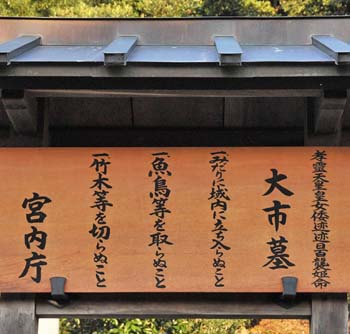 孝霊天皇皇女倭迹迹日百襲姫命
大市墓
一みだりに域内に立ち入らぬこと
一魚鳥等を取らぬこと
一竹木等を切らぬこと
宮内庁